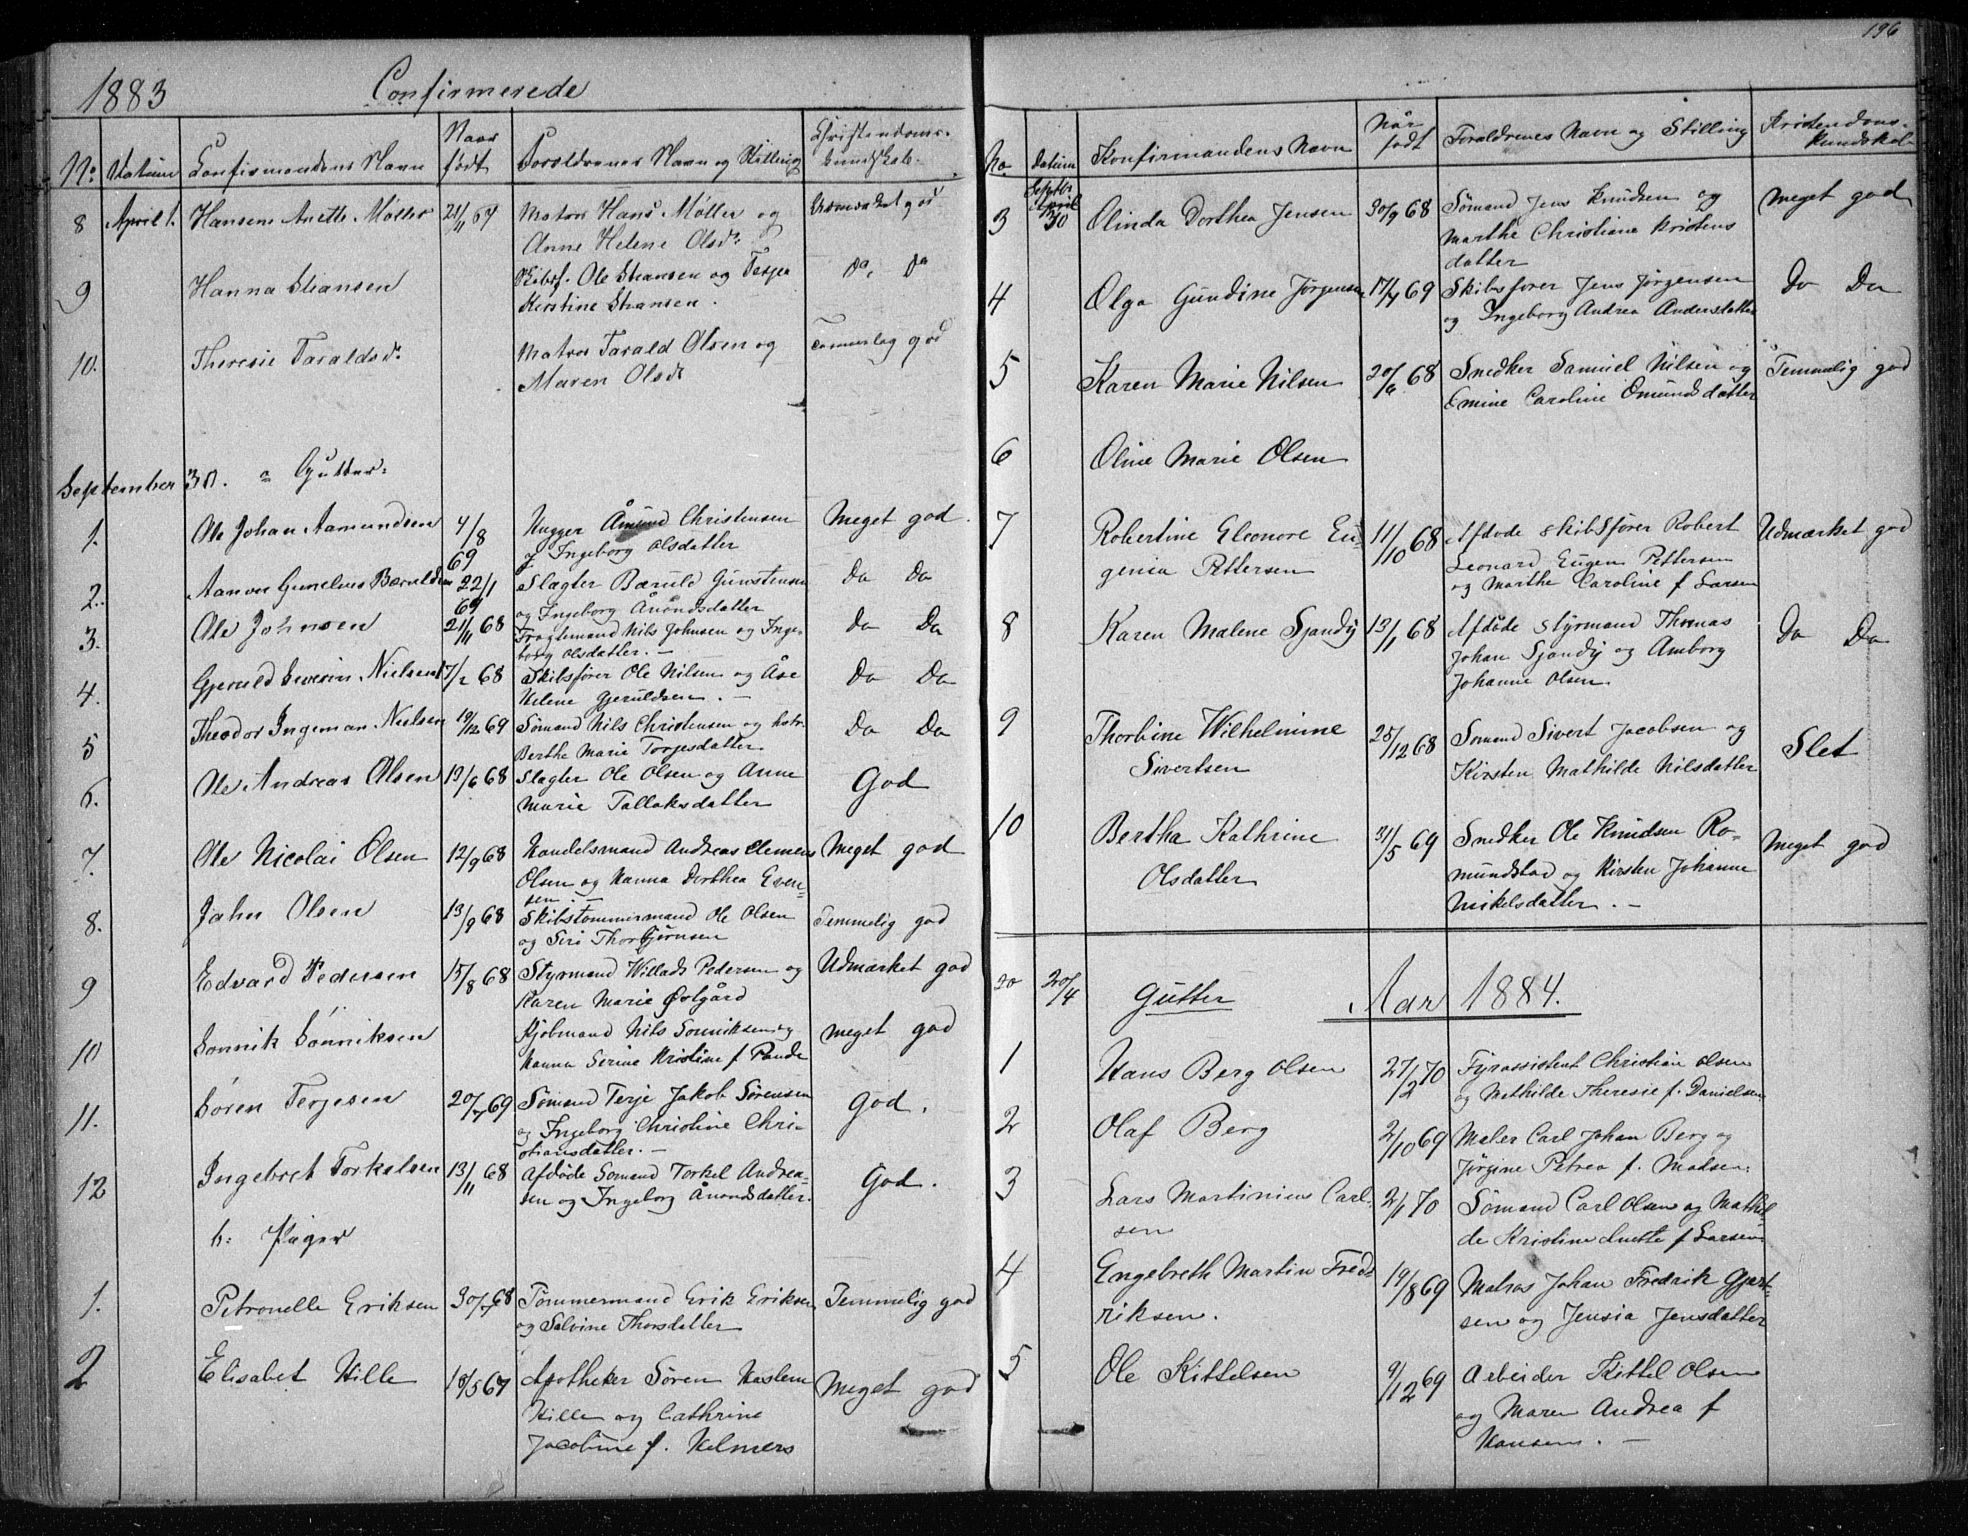 196
1883 Confirmerede
No Datum Confirmandens Navn Naar født Forældrenes Navn og Stilling Christendoms-
kundskab.
8 April 1. Hansen Anette Møller 21/11 67 Matros Hans Møller og Udmærket god
Anne Helene Olsd.
9 Hanna Stiansen Skibsf. Ole Stiansen og Terjea Do, Do
Kirstine Stiansen.
10. Theresie Taraldsd. Matros Tarald Olsen og Temmelig god
Maren Olsd.
September 30. a Gutter:
1. Ole Johan Aamundsen 4/8 69 Åmund Christensen Meget god.
Ingeborg Olsdatter
2. Gunelius 22/1 69 Slagter Bæruld Gunstensen Do Do
og Ingeborg Ånondsdatter
3. Ole Johnsen 21/11 68 Nils Johnsen og Inge- Do Do
borg Olsdatter. —
4. Gjeruld Severin Nielsen 7/2 68 Skibsfører Ole Nilsen og Åse Do Do
Helene Gjeruldsen. —
5 Theodor Ingeman Nielsen 19/12 69 Sømand Nils Christensen og hstr. Do Do
Berthe Marie Torjesdatter
6. Ole Andreas Olsen 13/6 68 Slagter Ole Olsen og Anne God
Marie Tallaksdatter
7. Ole Nicolai Olsen 12/9 68 Handelsmand Andreas Clemens Meget god
Olsen og Hanna Dorthea Even-
sen. —
8. John Olsen 13/9 68 Skibstømmermand Ole Olsen Temmelig god
og Siri Thorbjørnsen
9 Edvard Pedersen 15/8 68 Styrmand Willads Pedersen og Udmærket god
Karen Marie Østgård
10 Sønnik Sønniksen Kjøbmand Nils Sønniksen og meget god
Hanna Serine Kristine f. Pande
11. Søren Terjesen 20/7 69 Sømand Terje Jakob Sørensen God.
og Ingeborg Christine Chri-
stiansdatter. —
12 Ingebret Torkelsen 13/11 68 Afdøde Sømand Torkel Andrea- God.
sen og Ingeborg Ånondsdatter.
b: Piger
1. Petronelle Eriksen 30/7 68 Tømmermand Erik Eriksen Temmelig god
og Salvine Thorsdatter
2 Elisabet Hille 18/5 67 Apotheker Søren Haslem Meget god
Hille og Cathrine
Jacobine f. Helmers
No Datum Konfirmandens Navn Når født Forældrenes Navn og Stilling Kristendoms-
kundskab
3 Septbr April 30 Olinda Dorthea Jensen 30/9 68 Sømand Jens Knudsen og Meget god
Marthe Christiane Kristens
datter
4 Olga Gundine Jørgensen 17/4 69 Skibsfører Jens Jørgensen Do Do
og Ingeborg Andrea Andersdatter
5 Karen Marie Nilsen 20/6 68 Snedker Samuel Nilsen og Temmelig god
Emine Caroline Omundsdatter
6 Oline Marie Olsen
7 Robertine Eleonore Eu- 11/10 68 Afdøde Skibsfører Robert Udmærket god
genia Pettersen Leonard Eugen Pettersen
og Marthe Caroline f Larsen
8 Karen Malene Sjandy 13/1 68 Afdøde Styrmand Thomas Do Do
Johan Sjandy og Amborg
Johanne Olsen.
9 Thorbine Wilhelmine 25/12 68 Sømand Sivert Jacobsen og Slet
Sivertsen Kirsten Mathilde Nilsdatter
10 Bertha Kathrine 31/5 69 Snedker Ole Knudsen Ro- Meget god
Olsdatter mundstad og Kirsten Johanne
Mikelsdatter. —
20 20/4 Gutter Aar 1884.
1 Hans Berg Olsen 27/2 70 Fyrassistent Christian Olsen
og Mathilde Theresie f. Danielsen
2 Olaf Berg 2/10 69 Maler Carl Johan Berg og
Jørgine Petrea f. Madsen.
3 Lars Martinius Carl- 2/1 70 Sømand Carl Olsen og Mathil-
sen de Kristine Anette f Larsen
4 Engebreth Martin Fred- 19/8 69 Matros Johan Fredrik Gjert-
riksen. sen og Jensia Jensdatter
5 Ole Kittelsen 9/12 69 Arbeider Kittel Olsen
og Maren Andrea f
Hansen. —